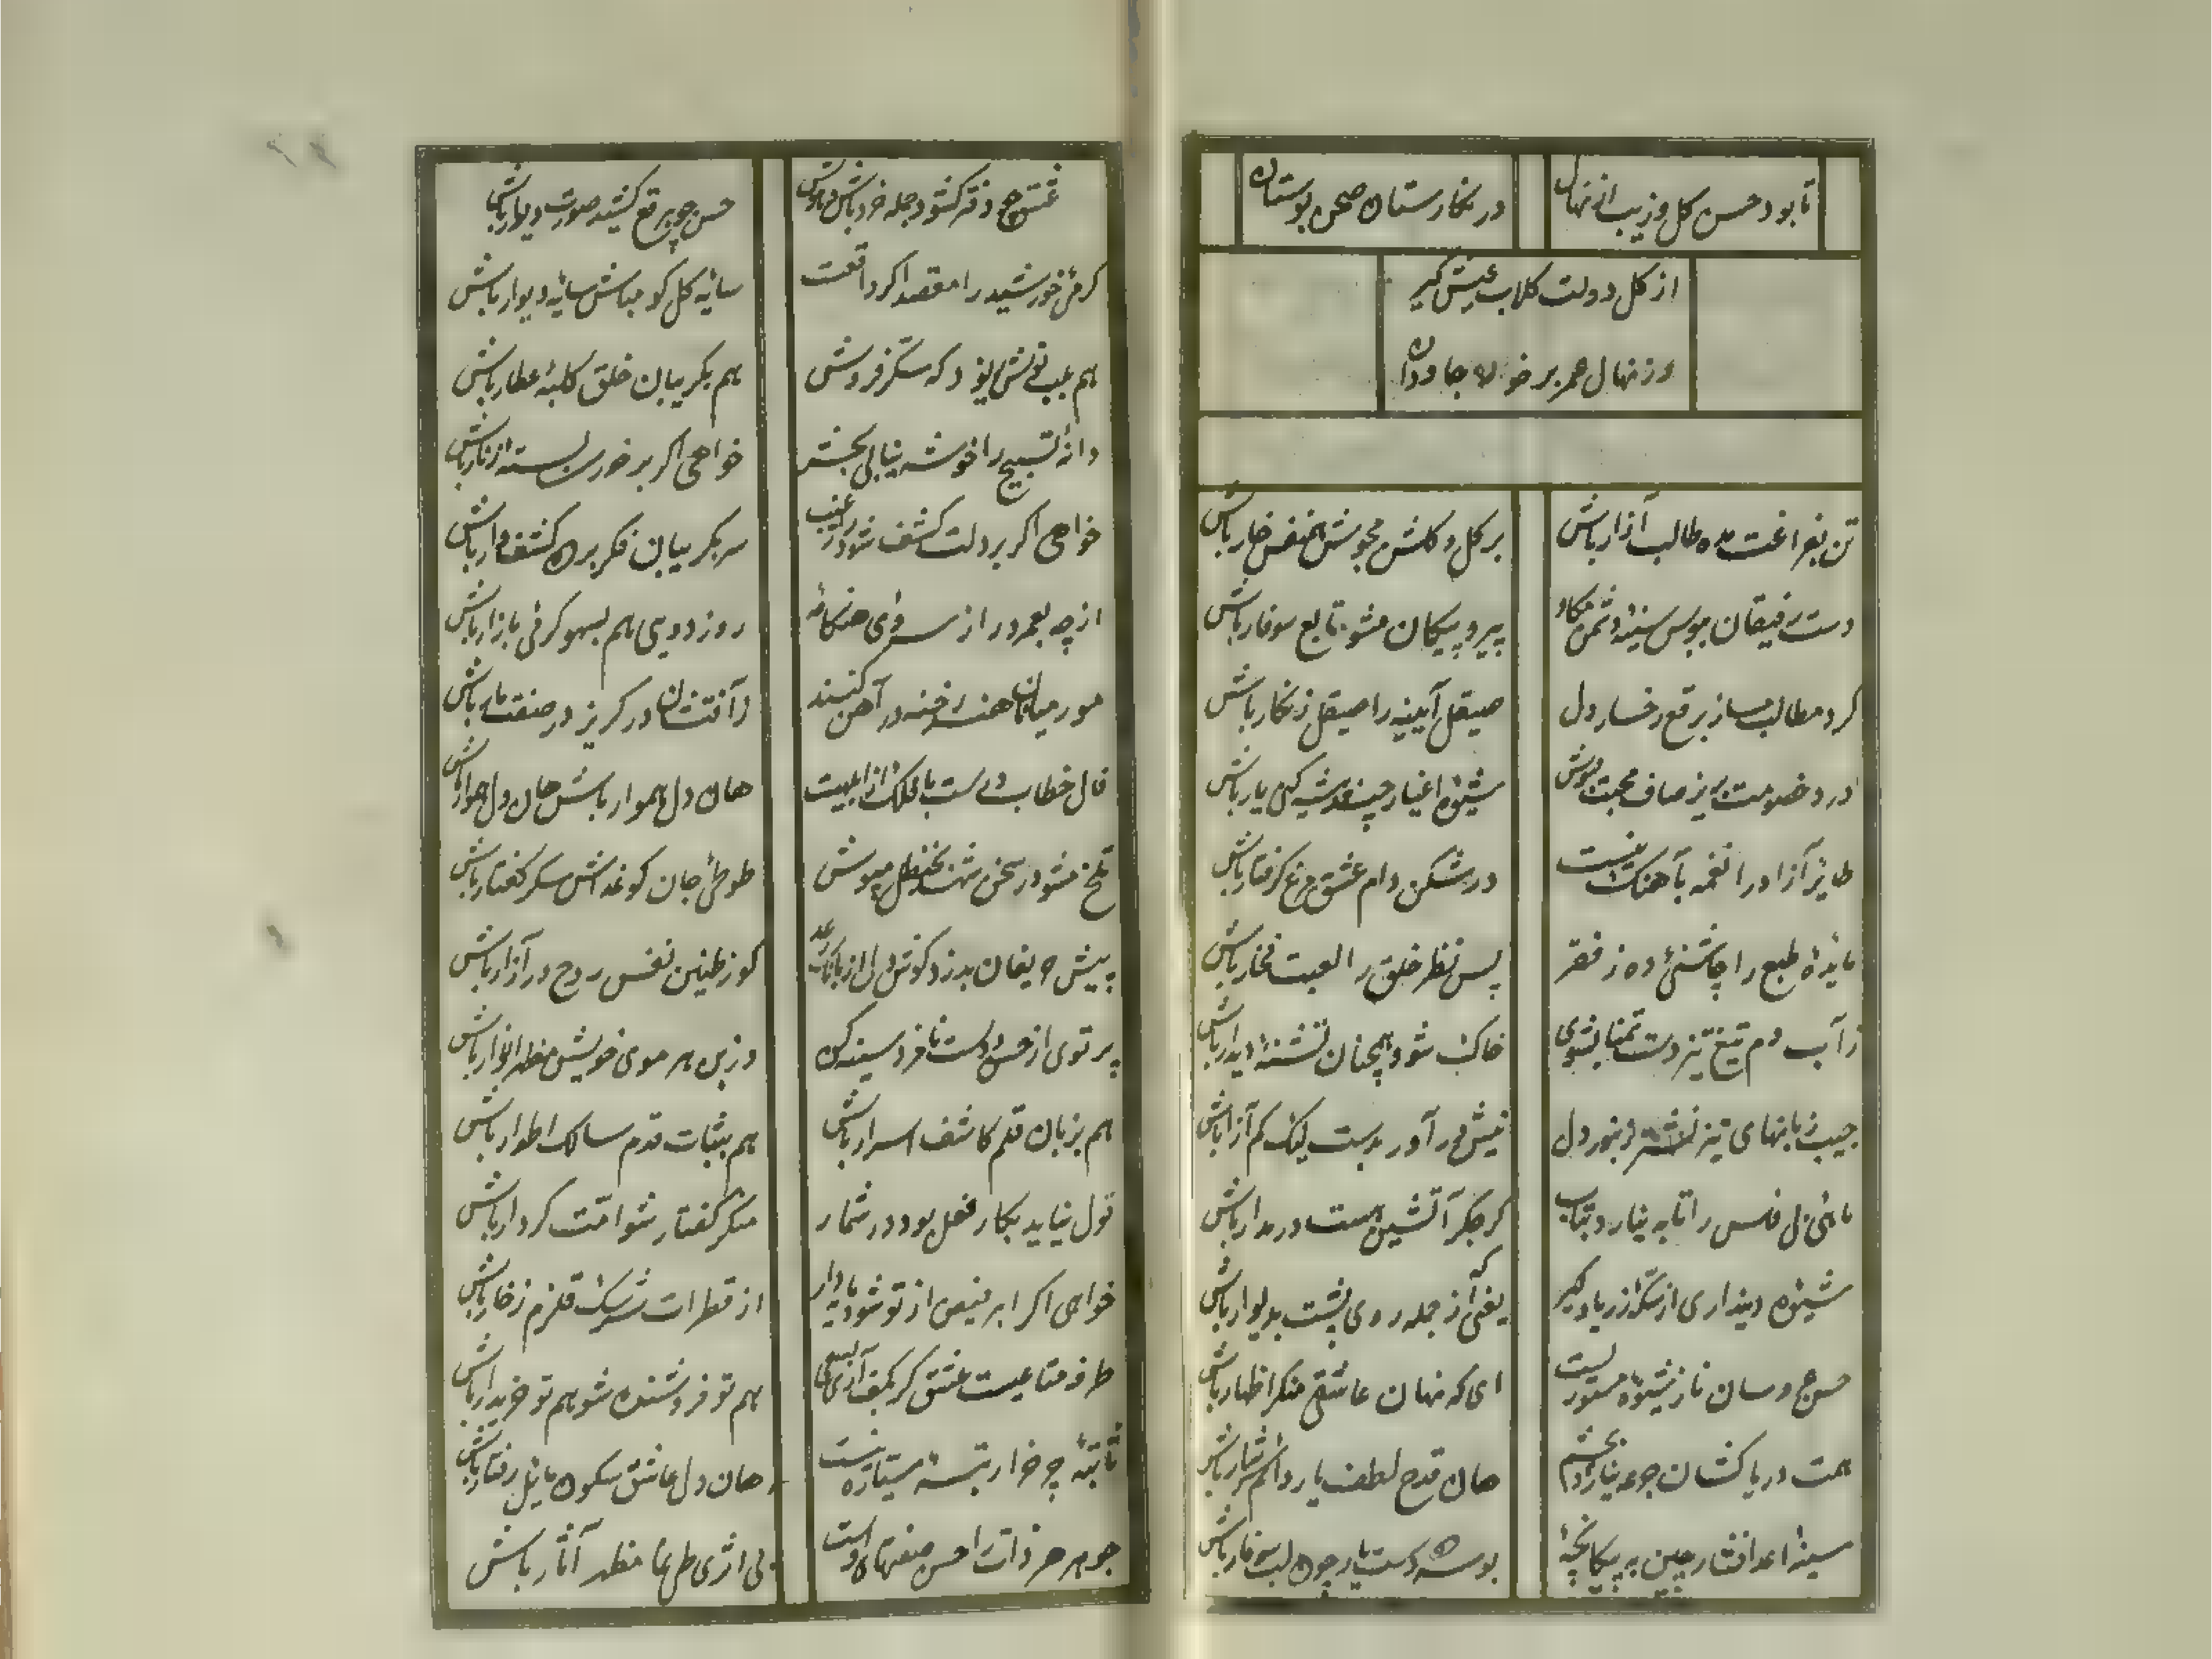 تا بود حسن گل و زیب از نهال
در نگارستان صحن بوستان
از گل دولت گلاب عیش گیر
وز نهال عمر بر خور جاودان
تن بفراغت مده طالب آزار باش
بر گل و گلشن مجوش همنفس خار باش
دست رفیقان ببوس سینه دشمن مکاو
پیرو پیکان مشو تابع سوفار باش
گرد مطالب مساز برقع رخسار دل
صیقل آیینه را صیقل زنگار باش
درد خصومت بریز صاف محبت بنوش
شیوه اغیار چیست همه یار باش
طایر آزاد را نغمه بآهنگ نیست
در شکن دام عشق مرغ گرفتار باش
مایده طبع را چاشنی ده ز فقر
پس نظر خلق را لعبت فخار باش
ز آب دم تیغ تیز دست تمنا بشوی
خاک شو و همچنان تشنه دیدار باش
جیب زبانهای تیز دل
نیش در آور بدست لیک کم آزار باش
ماهی بی فلس را تابه نیارد بتاب
گر جگر آتشین هست درمدار باش
شیوه دینداری از سکه زر یاد گیر
یعنی از جمله روی پشت بدیوار باش
حسن وسان ناز شیوه مستور نیست
ای که نهان عاشقی منکر اظهار باش
همت دریا کشان جرعه نیارد بچشم
هان قدح لطف یار سرشار باش
سینه اعدا فشار چین به پیکان
بوسه ده دست یار چون لب سوفار باش
عشق چو دفتر گشود جمله خرد باش و هوش
حسن چو برقع کشید صورت دیوار باش
گرمی خورشید را مقصد اگر
سایه گل گو مباش سایه دیوار باش
هم بلب نوش بود که شکر فروش
هم بگریبان خلق کلبه عطار باش
دانه تسبیح را خوشه ببخش
خواهی اگر بر خوری بسته زنار باش
خواهی اگر بر دلت کشف شود راز غیب
سر بگریبان فکر بر کشف وار باش
از چه بعمر دراز هنگامه
روز دویی هم بسهو گرمی بازار باش
مور میانان هند رخنه در آهن کنند
ز آفتشان در گریز در صفت مار باش
فال خطاب با فلک از ابلهیست
هان دل هموار باش هان دل هموار باش
تلخ مشو در سخن شهد بحنظل مپوش
طوطی جان گو غذاش شکر گفتار باش
پیش حریفان بدزد گوش دل از بانگ
کو ز طنین نفس روح در آزار باش
پرتوی از حسن دوست نافرد سینه کن
وز بن هر موی خویش مظهر انوار باش
هم بزبان قلم کاشف اسرار باش
هم بثبات قدم سالک اطوار باش
قول نیاید بکار فعل بود در شمار
منکر گفتار شو امت کردار باش
خواهی اگر ابر فیض از تو شود مایه‌دار
از قطرات سرشک قلزم زخار باش
طرفه متاعیست عشق گر بکف آری بسی
هم تو فروشنده شو هم تو خریدار باش
ثابته چو خوار رتبه سیاره نیست
هان دل عاشق سکون مایل رفتار باش
جوهر هر ذات را حسن صفتهای اوست
بی اثری طی نما مظهر آثار باش